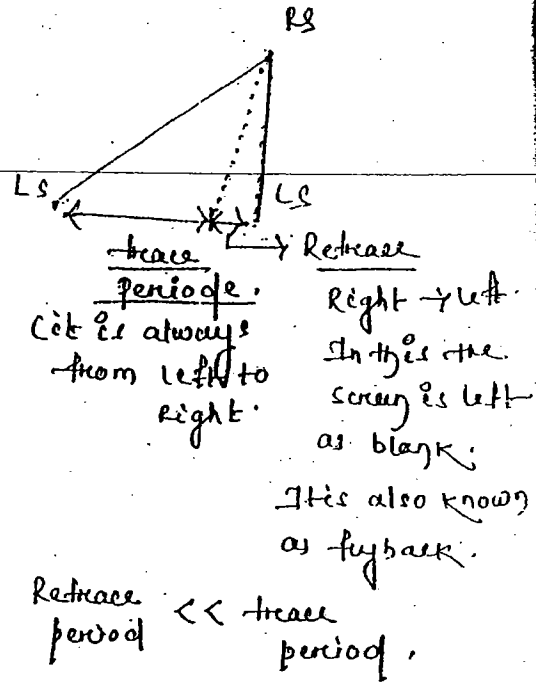 RS
LS
LS
trace
periode.
(it is always
from left to
Right.
Retrace
Right → left.
In this the
screen is left
as blank.
It is also known
as flyback.
Retrace << trace
period period.